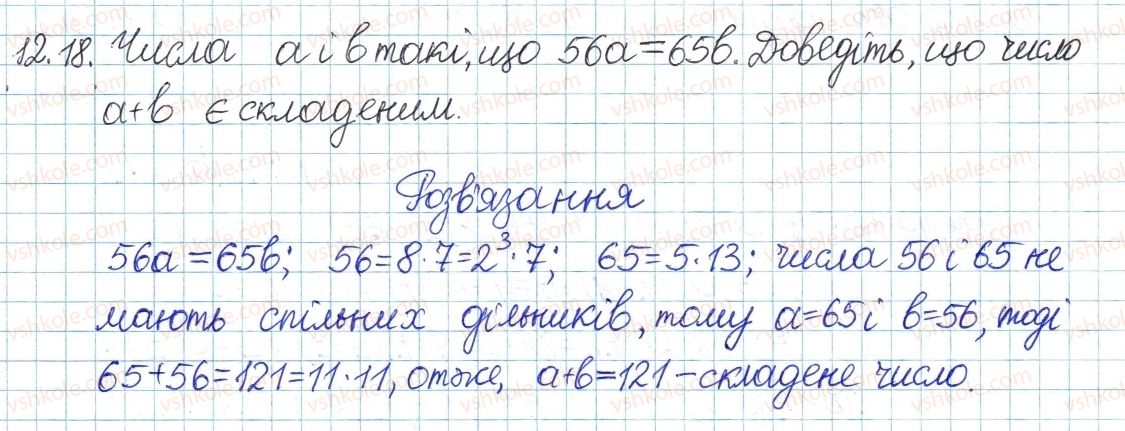 12.18. Числа a і в такі, що 56a=65в. Доведіть, що число
a+в є складеним.
Розв'язання
56a=65в; 56=8·7=2³·7; 65=5·13; числа 56 і 65 не
мають спільних дільників, тому a=65 і в=56, тоді
65+56=121=11·11, отже, a+в=121 – складене число.